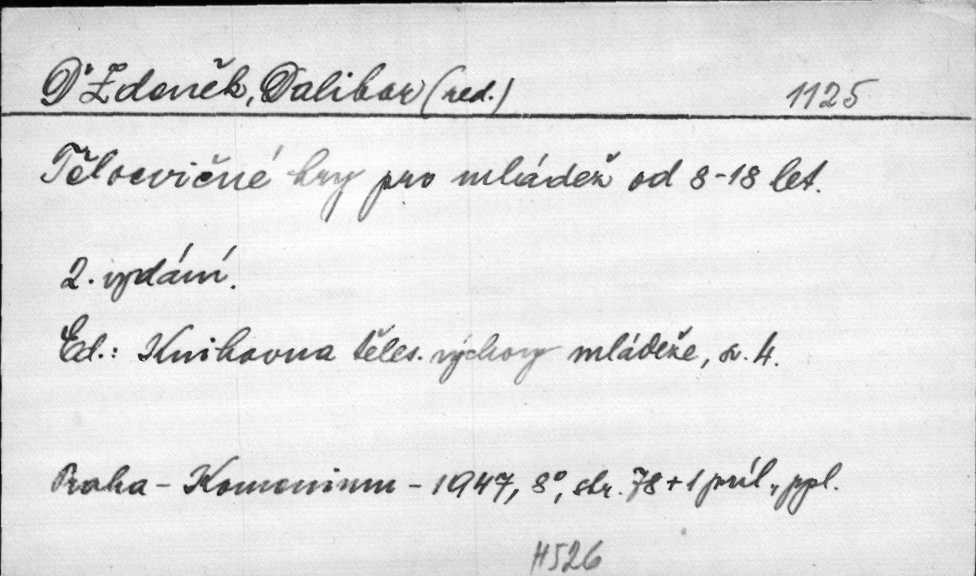 Dr Zdeněk, Dalibor (red.) 1125
Tělocvičné hry pro mládež od 8-18 let.
2. vydání.
Ed.: Knihovna těles. výchovy mládeže, sv. 4.
Praha - Komenium - 1947, 8°, str. 78 + 1 příl., ppl.
H526